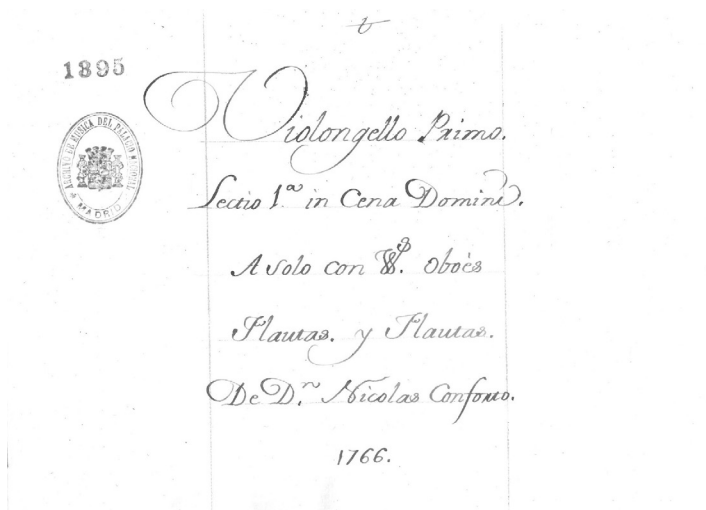 1895
ARCHIVO DE MUSICA DEL PALACIO NACIONAL
MADRID
Violongello Primo.
Lectio 1.ª in Cena Domini.
A solo con VV.ˢ Oboès
Flautas. y Flautas.
De D.ⁿ Nicolas Conforto.
1766.